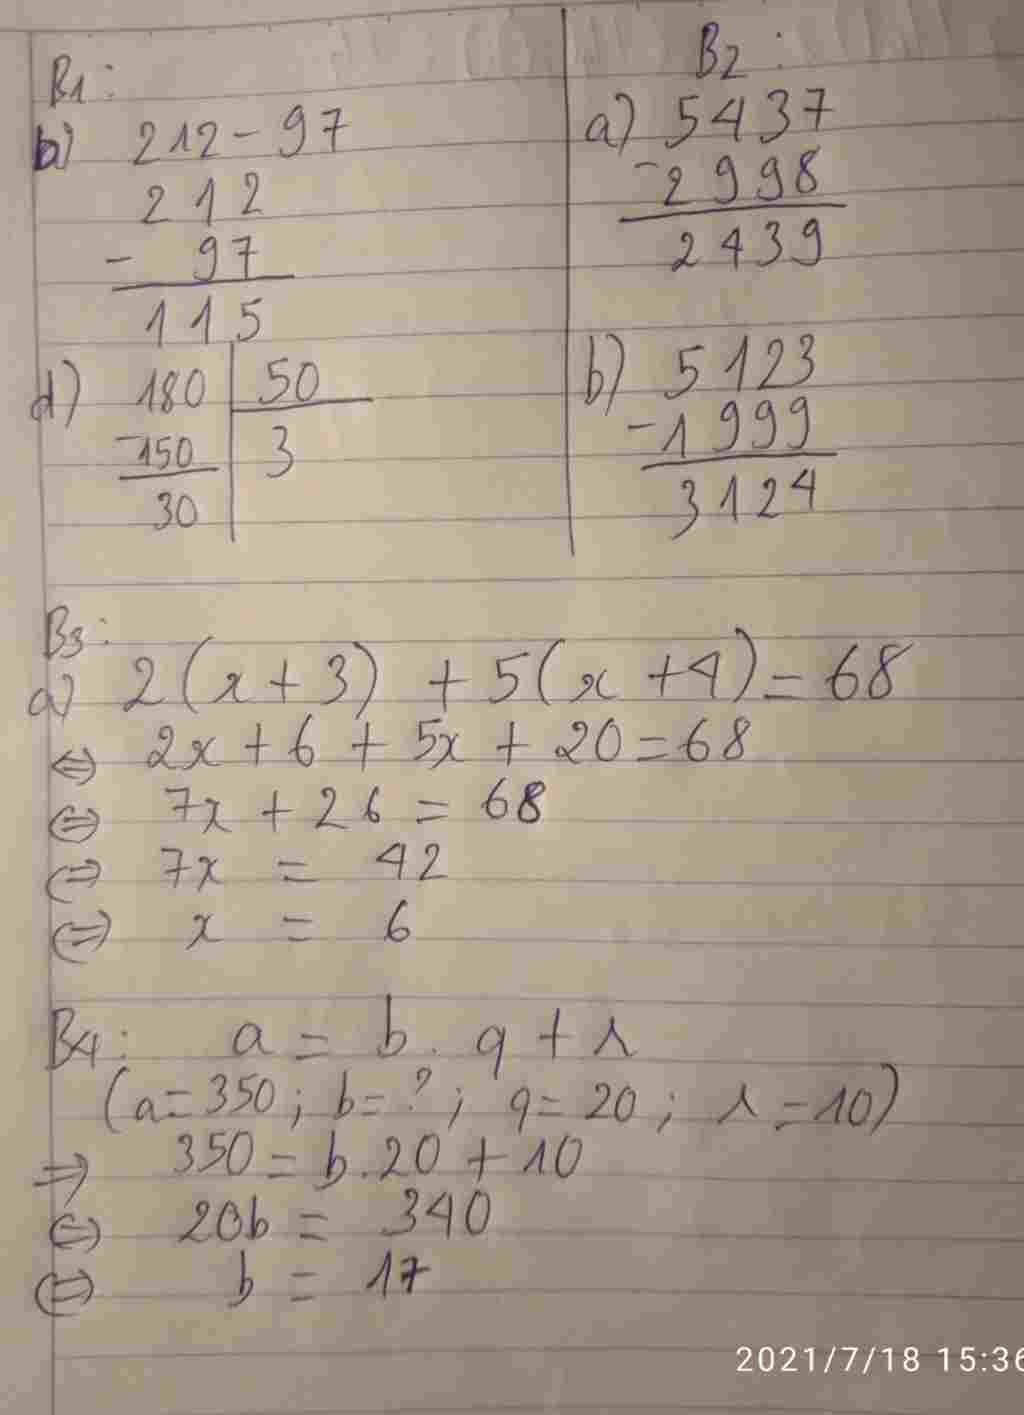 B1:
b) 212 - 97
212
- 97
115
d) 180 50
-150 3
30
B2:
a) 5437
-2998
2439
b) 5123
-1999
3124
B3:
a) 2(x+3) + 5(x+4) = 68
⇔ 2x + 6 + 5x + 20 = 68
⇔ 7x + 26 = 68
⇔ 7x = 42
⇔ x = 6
B4: a = b . q + r
(a = 350 ; b = ? ; q = 20 ; r = 10)
⇒ 350 = b . 20 + 10
⇔ 20b = 340
⇔ b = 17
2021/7/18 15:36